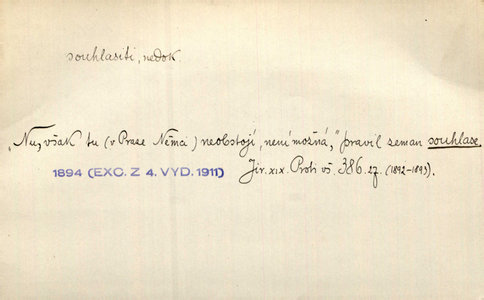 souhlasiti, nedok.
„Nu, však tu (v Praze Němci) neobstojí, není možná," pravil zeman souhlase.
1894 (EXC. Z 4. VYD. 1911) Jir. XIX. Proti vš. 386. 27. (1892-1893).